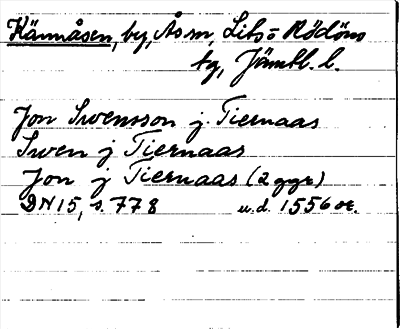 Kännåsen, by, Ås sn, Lits o Rödöns
tg, Jämtl. l.
Jon Swensson j Tiernaas
Swen j Tiernaas
Jon j Tiernaas (2 ggr)
DN 15, s. 778 u.d. 1556 or.